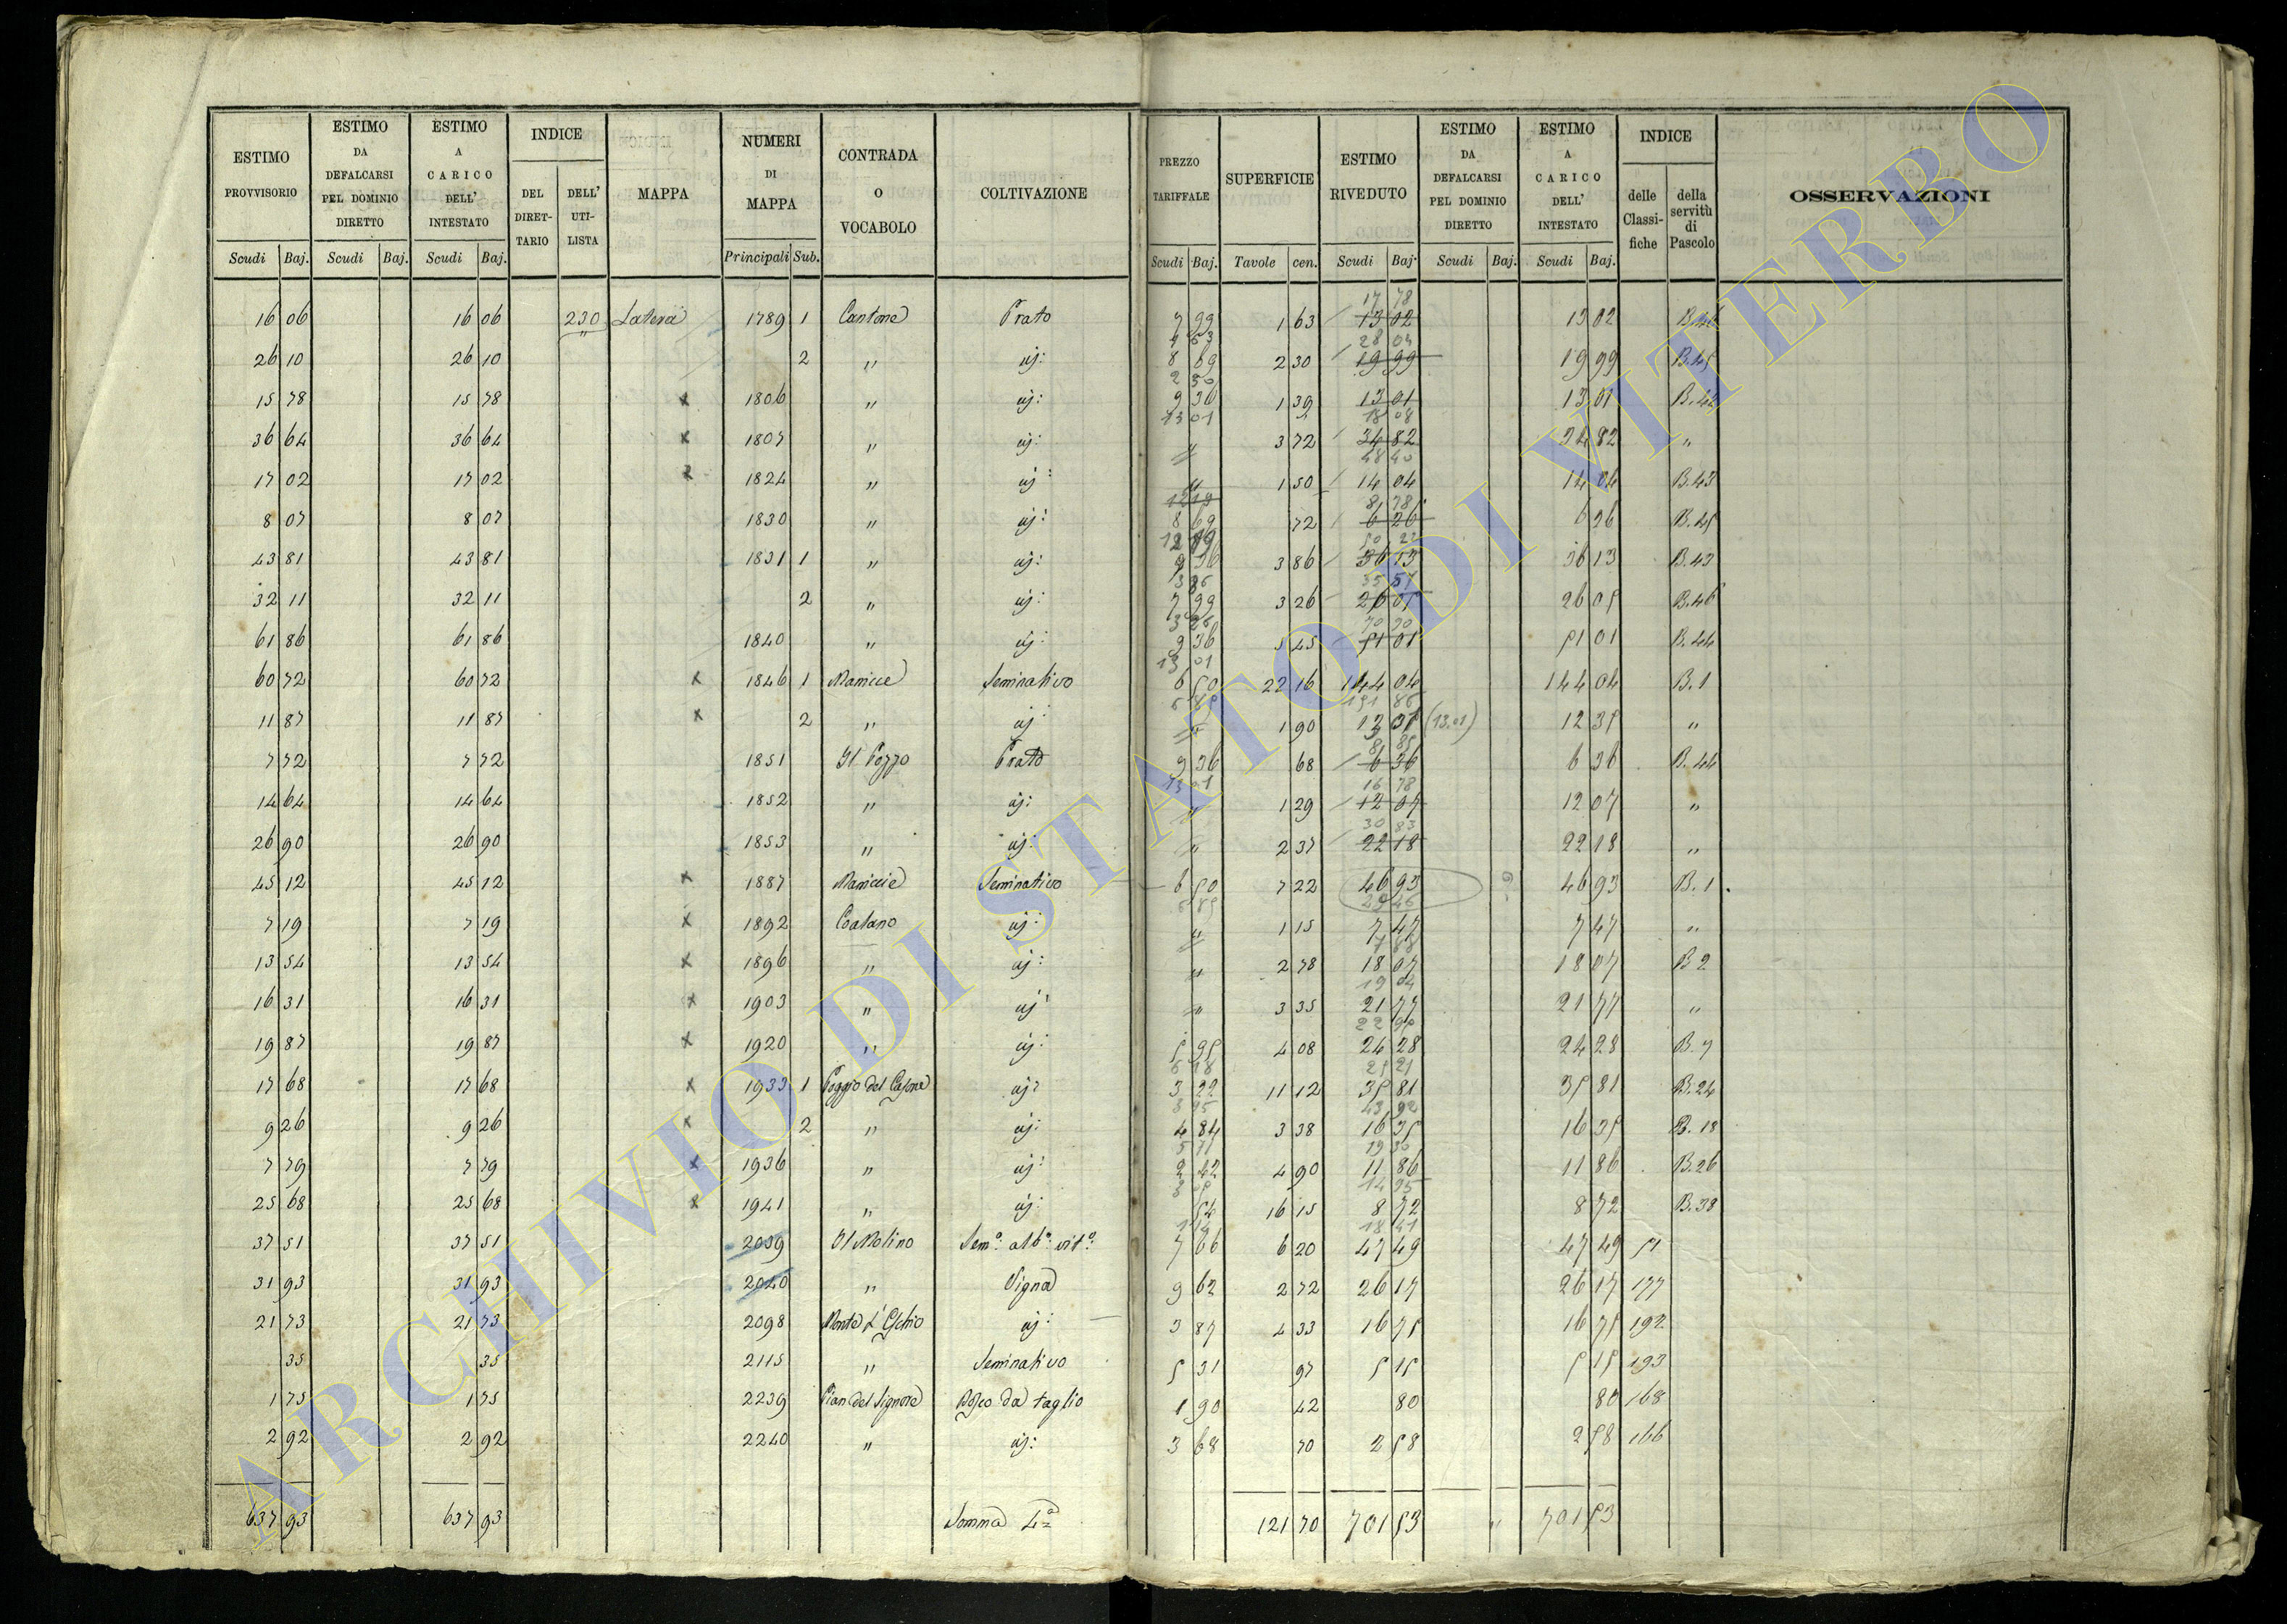 ESTIMO PROVVISORIO | ESTIMO DA DEFALCARSI PEL DOMINIO DIRETTO | ESTIMO A CARICO DELL' INTESTATO | INDICE | MAPPA | NUMERI DI MAPPA | CONTRADA O VOCABOLO | COLTIVAZIONE | PREZZO TARIFFALE | SUPERFICIE | ESTIMO RIVEDUTO | ESTIMO DA DEFALCARSI PEL DOMINIO DIRETTO | ESTIMO A CARICO DELL' INTESTATO | INDICE | OSSERVAZIONI
DEL DIRET-TARIO | DELL' UTI-LISTA | delle Classi-fiche | della servitù di Pascolo
Scudi | Baj. | Scudi | Baj. | Scudi | Baj. | Principali | Sub. | Scudi | Baj. | Tavole | cen. | Scudi | Baj. | Scudi | Baj. | Scudi | Baj.
16 06 | 16 06 | 230 | Latera | 1789 | 1 | Cantone | Prato | 7 99 | 1 63 | 13 02 | 17 78 | 13 02
26 10 | 26 10 | 2 | " | id: | 8 69 | 2 30 | 19 99 | 28 04 | 19 99 | B.45
15 78 | 15 78 | x | 1806 | " | id: | 9 36 | 13 01 | 1 39 | 13 01 | 18 08 | 13 01 | B.44
36 64 | 36 64 | x | 1807 | " | id: | " | 3 72 | 34 82 | 48 40 | 34 82 | "
17 02 | 17 02 | x | 1824 | " | id: | " | 1 50 | 14 04 | 14 04 | B.43
8 07 | 8 07 | 1830 | " | id: | 8 69 | 72 | 6 26 | 8 78 | 6 26 | B.45
43 81 | 43 81 | 1831 | 1 | " | id: | 9 36 | 3 86 | 36 13 | 50 22 | 36 13 | B.43
32 11 | 32 11 | 2 | " | id: | 7 99 | 3 26 | 26 05 | 35 57 | 26 05 | B.46
61 86 | 61 86 | 1840 | " | id: | 9 36 | 13 01 | 5 45 | 51 01 | 70 90 | 51 01 | B.44
60 72 | 60 72 | x | 1846 | 1 | Maniccie | Seminativo | 6 50 | 22 16 | 144 04 | 151 86 | 144 04 | B.1
11 87 | 11 87 | x | 2 | " | id: | " | 1 90 | 12 35 | (13.01) | 12 35 | "
7 72 | 7 72 | 1851 | Il Pozzo | Prato | 9 36 | 13 01 | 68 | 6 36 | 8 85 | 6 36 | B.44
14 64 | 14 64 | 1852 | " | id: | " | 1 29 | 12 07 | 16 78 | 12 07 | "
26 90 | 26 90 | 1853 | " | id: | " | 2 37 | 22 18 | 30 83 | 22 18 | "
45 12 | 45 12 | x | 1887 | Maniccie | Seminativo | 6 50 | 7 22 | 46 93 | ? | 46 93 | B.1
7 19 | 7 19 | x | 1892 | Coatano | id: | " | 1 15 | 7 47 | 7 88 | 7 47 | "
13 54 | 13 54 | x | 1896 | " | id: | " | 2 78 | 18 07 | 19 04 | 18 07 | B 2
16 31 | 16 31 | x | 1903 | " | id: | " | 3 35 | 21 77 | 22 90 | 21 77 | "
19 87 | 19 87 | x | 1920 | " | id: | 5 95 | 6 18 | 4 08 | 24 28 | 25 21 | 24 28 | B.7
17 68 | 17 68 | x | 1933 | 1 | Poggio del Casone | id: | 3 22 | 3 95 | 11 12 | 35 81 | 43 92 | 35 81 | B.24
9 26 | 9 26 | x | 2 | " | id: | 4 84 | 5 71 | 3 38 | 16 35 | 19 30 | 16 35 | B.18
7 79 | 7 79 | x | 1936 | " | id: | 2 42 | 4 90 | 11 86 | 14 95 | 11 86 | B.26
25 68 | 25 68 | x | 1941 | " | id: | 54 | 1 14 | 16 15 | 8 72 | 18 41 | 8 72 | B.38
37 51 | 37 51 | 2039 | Il Molino | Sem.º alb.º vit.º | 7 66 | 6 20 | 47 49 | 47 49 | 51
31 93 | 31 93 | 2040 | " | Vigna | 9 62 | 2 72 | 26 17 | 26 17 | 177
21 73 | 21 73 | 2098 | Monte d'Eschio | id: | 3 87 | 4 33 | 16 75 | 16 75 | 192
35 | 35 | 2115 | " | Seminativo | 5 31 | 97 | 5 15 | 5 15 | 193
1 75 | 1 75 | 2239 | Pian del Signore | Bosco da taglio | 1 90 | 42 | 80 | 80 | 168
2 92 | 2 92 | 2240 | " | id: | 3 68 | 70 | 2 58 | 2 58 | 166
637 93 | 637 93 | Somma 4.ª | 121 70 | 701 53 | " | 701 53
ARCHIVIO DI STATO DI VITERBO